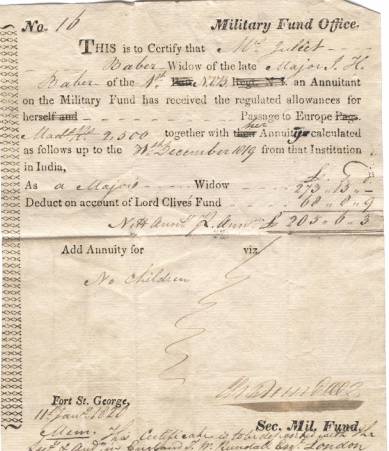 No. 16 Military Fund Office.
THIS is to Certify that Mrs. Juliet
Baber Widow of the late Major J. H.
Baber of the 4th N.V.B. Regt. N. I. an Annuitant
on the Military Fund has received the regulated allowances
for herself and Passage to Europe Pags.
Mad. 2,500 together with her Annuity calculated
as follows up to the 31st December 1819 from that Institution
in India,
As a Major's Widow £ 273 „ 15 „ —
Deduct on account of Lord Clive's Fund 68 „ 8 „ 9
Nett Annt. £ 205 „ 6 „ 3
Add Annuity for viz
No Children
Fort St. George,
11th Jany. 1820
Sec. Mil. Fund.
Mem. This Certificate is to be deposited with the
in England J. W. Rundall Esqr. London